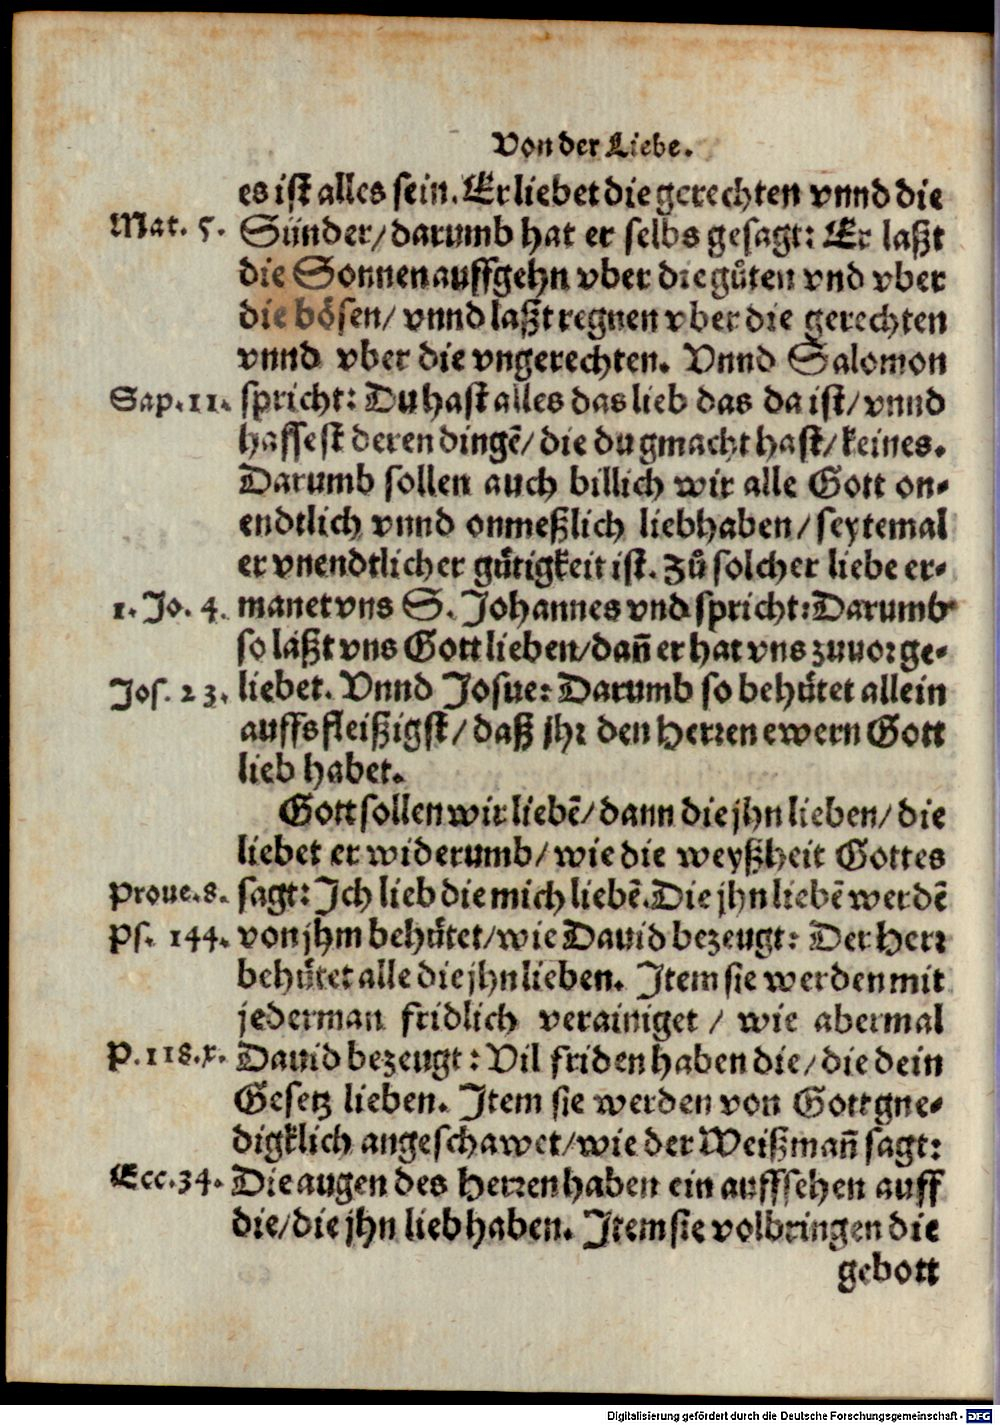 Von der Liebe.
es ist alles sein. Er liebet die gerechten vnnd die
Mat. 5. Sünder/ darumb hat er selbs gesagt: Er laßt
die Sonnen auffgehn vber die gůten vnd vber
die bösen/ vnnd laßt regnen vber die gerechten
vnnd vber die vngerechten. Vnnd Salomon
Sap. 11. spricht: Du hast alles das lieb das da ist/ vnnd
hassest deren dingē/ die du gmacht hast/ keines.
Darumb sollen auch billich wir alle Gott on-
endtlich vnnd onmeßlich liebhaben/ seytemal
er vnendtlicher gůtigkeit ist. Zů solcher liebe er-
1. Jo. 4. manet vns S. Johannes vnd spricht: Darumb
so laßt vns Gott lieben/ dañ er hat vns zuuor ge-
Jos. 23. liebet. Vnnd Josue: Darumb so behůtet allein
auffs fleißigst/ daß jhr den Herren ewern Gott
lieb habet.
Gott sollen wir liebē/ dann die jhn lieben/ die
liebet er widerumb/ wie die weyßheit Gottes
Proue. 8. sagt: Ich lieb die mich liebē. Die jhn liebē werdē
Ps. 144. von jhm behůtet/ wie Dauid bezeugt: Der Herr
behůtet alle die jhn lieben. Item sie werden mit
jederman fridlich verainiget / wie abermal
P. 118. x. Dauid bezeugt : Vil friden haben die/ die dein
Gesetz lieben. Item sie werden von Gott gne-
digklich angeschawet/ wie der Weißmañ sagt:
Ecc. 34. Die augen des Herren haben ein auffsehen auff
die/ die jhn lieb haben. Item sie volbringen die
gebott
Digitalisierung gefördert durch die Deutsche Forschungsgemeinschaft - DFG